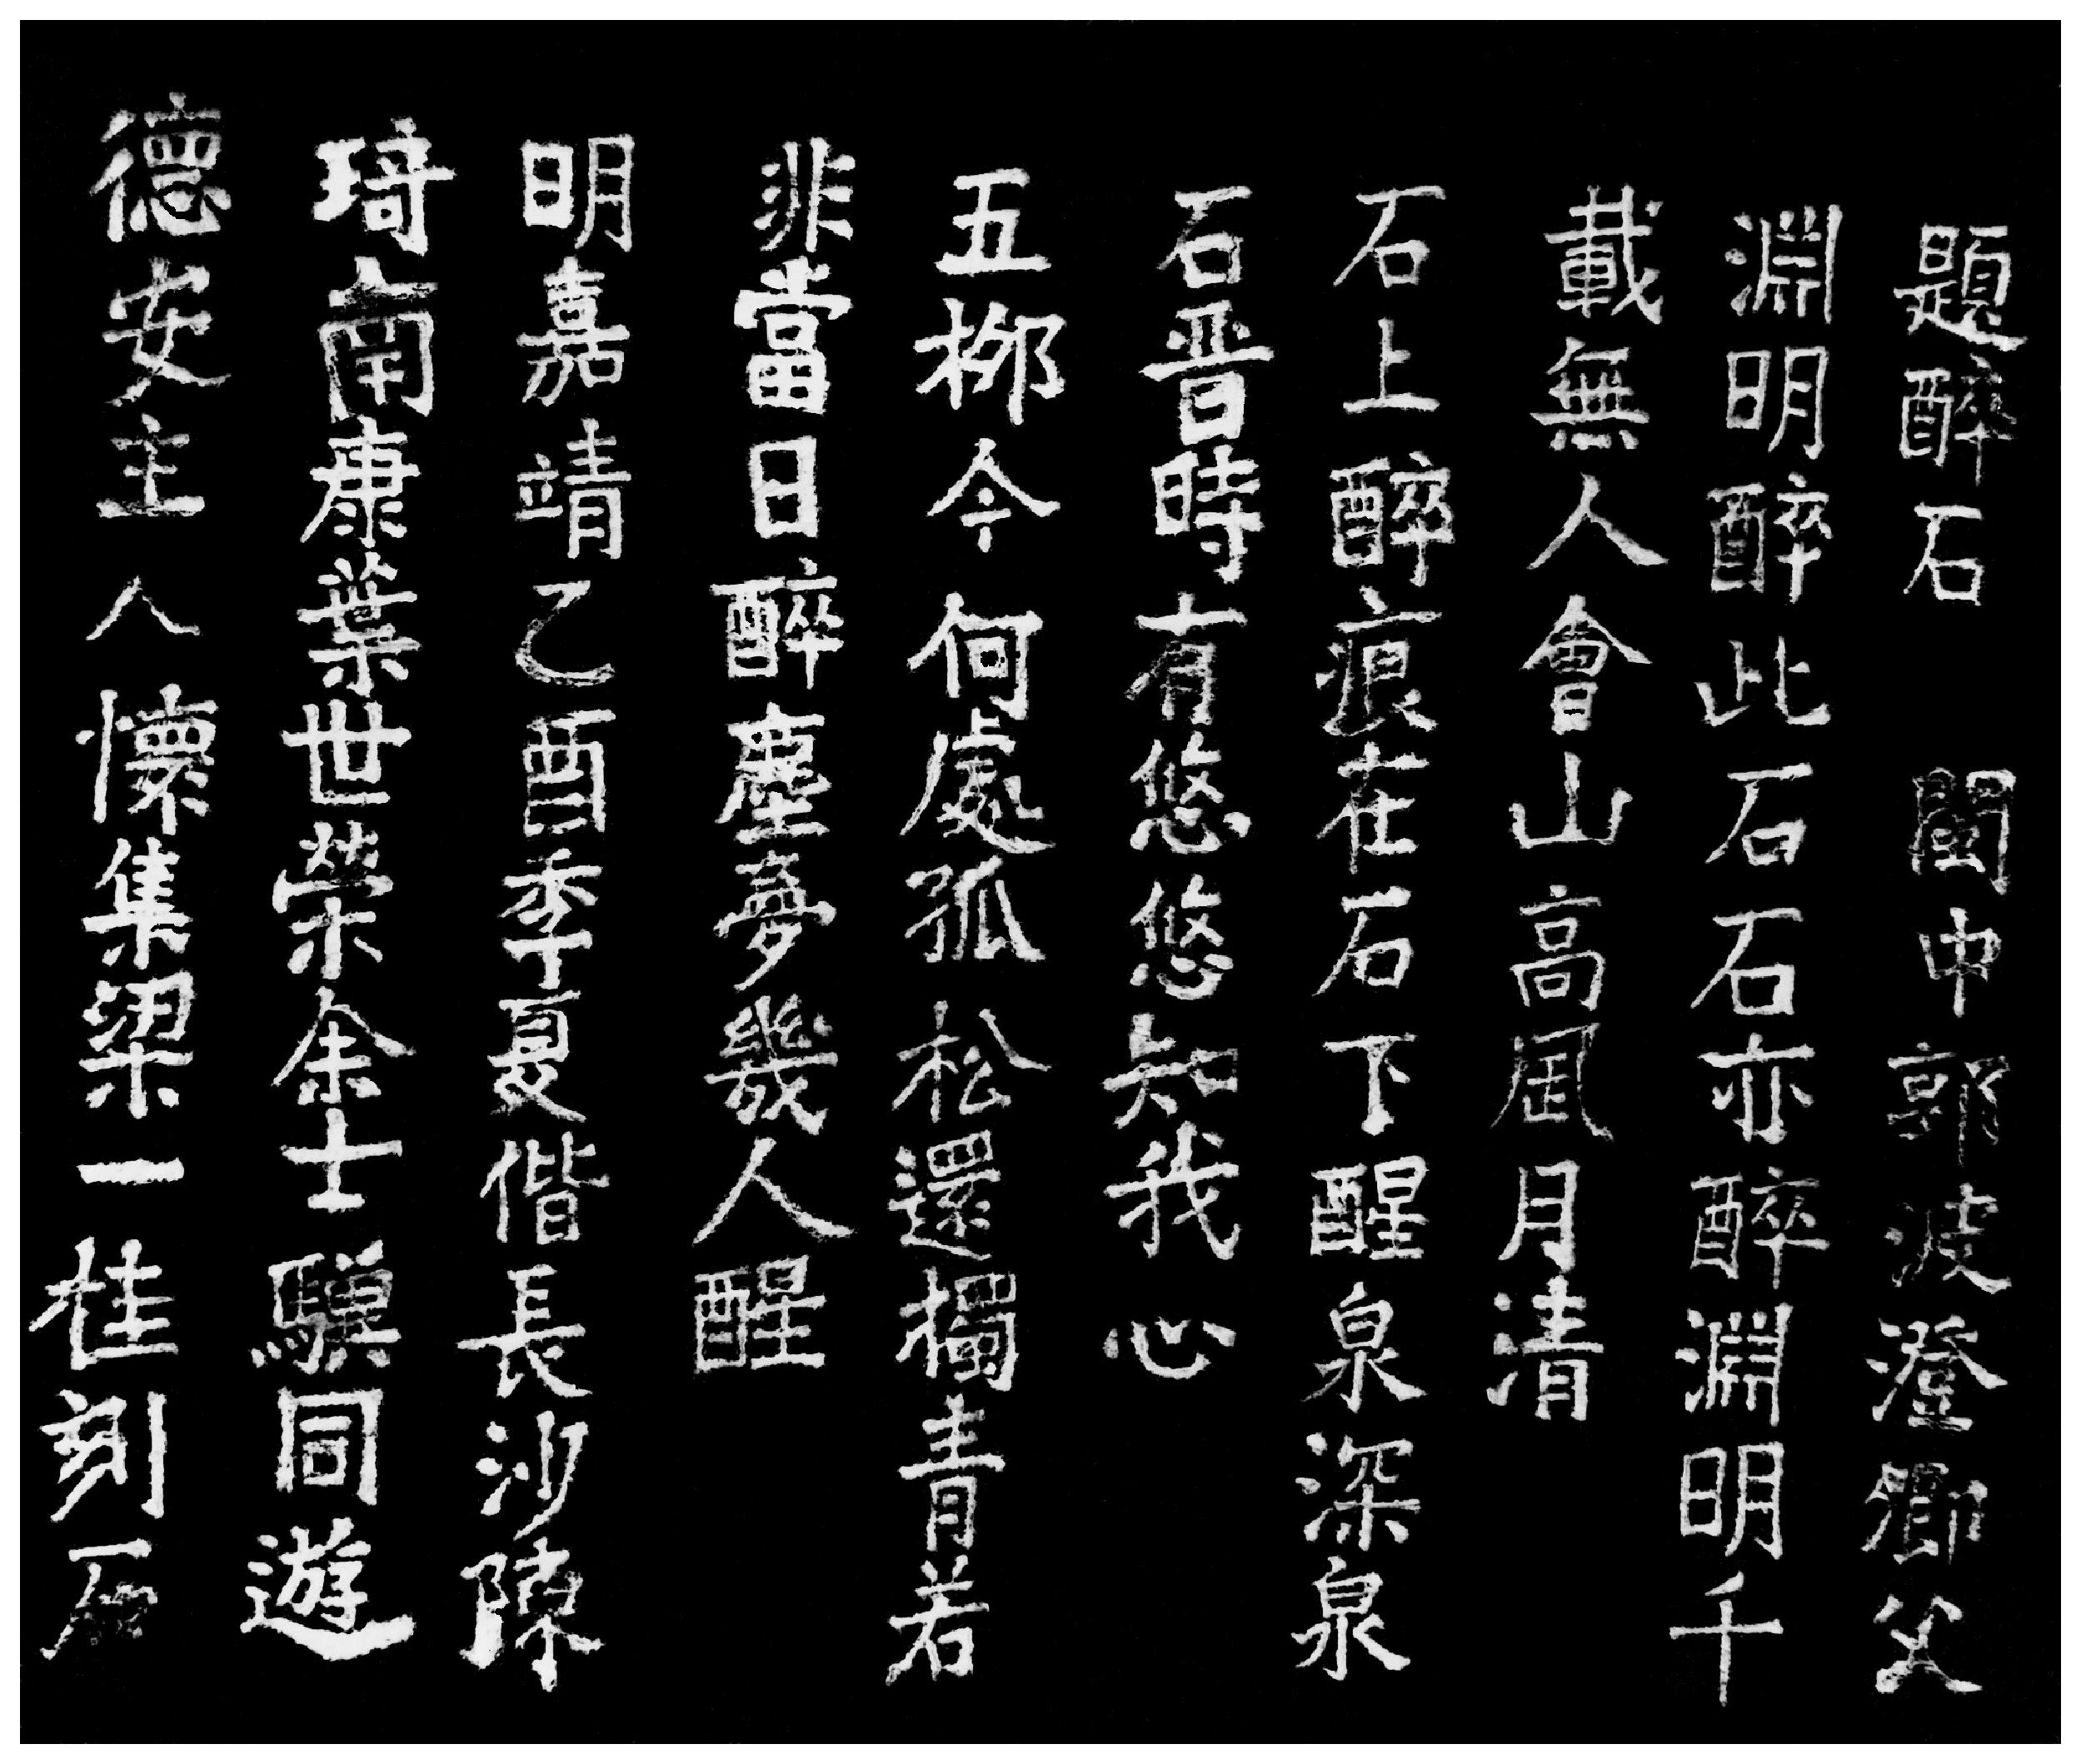 題醉石 閩中郭波澄卿父
淵明醉此石石亦醉淵明千
載無人會山高風月清
石上醉痕在石下醒泉深泉
石晋時有悠悠知我心
五柳今何處孤松還獨青若
非當日醉塵夢幾人醒
明嘉靖乙酉季夏偕長沙陳
琦南康葉世榮余士騏同遊
德安主人懷集梁一桂刻石